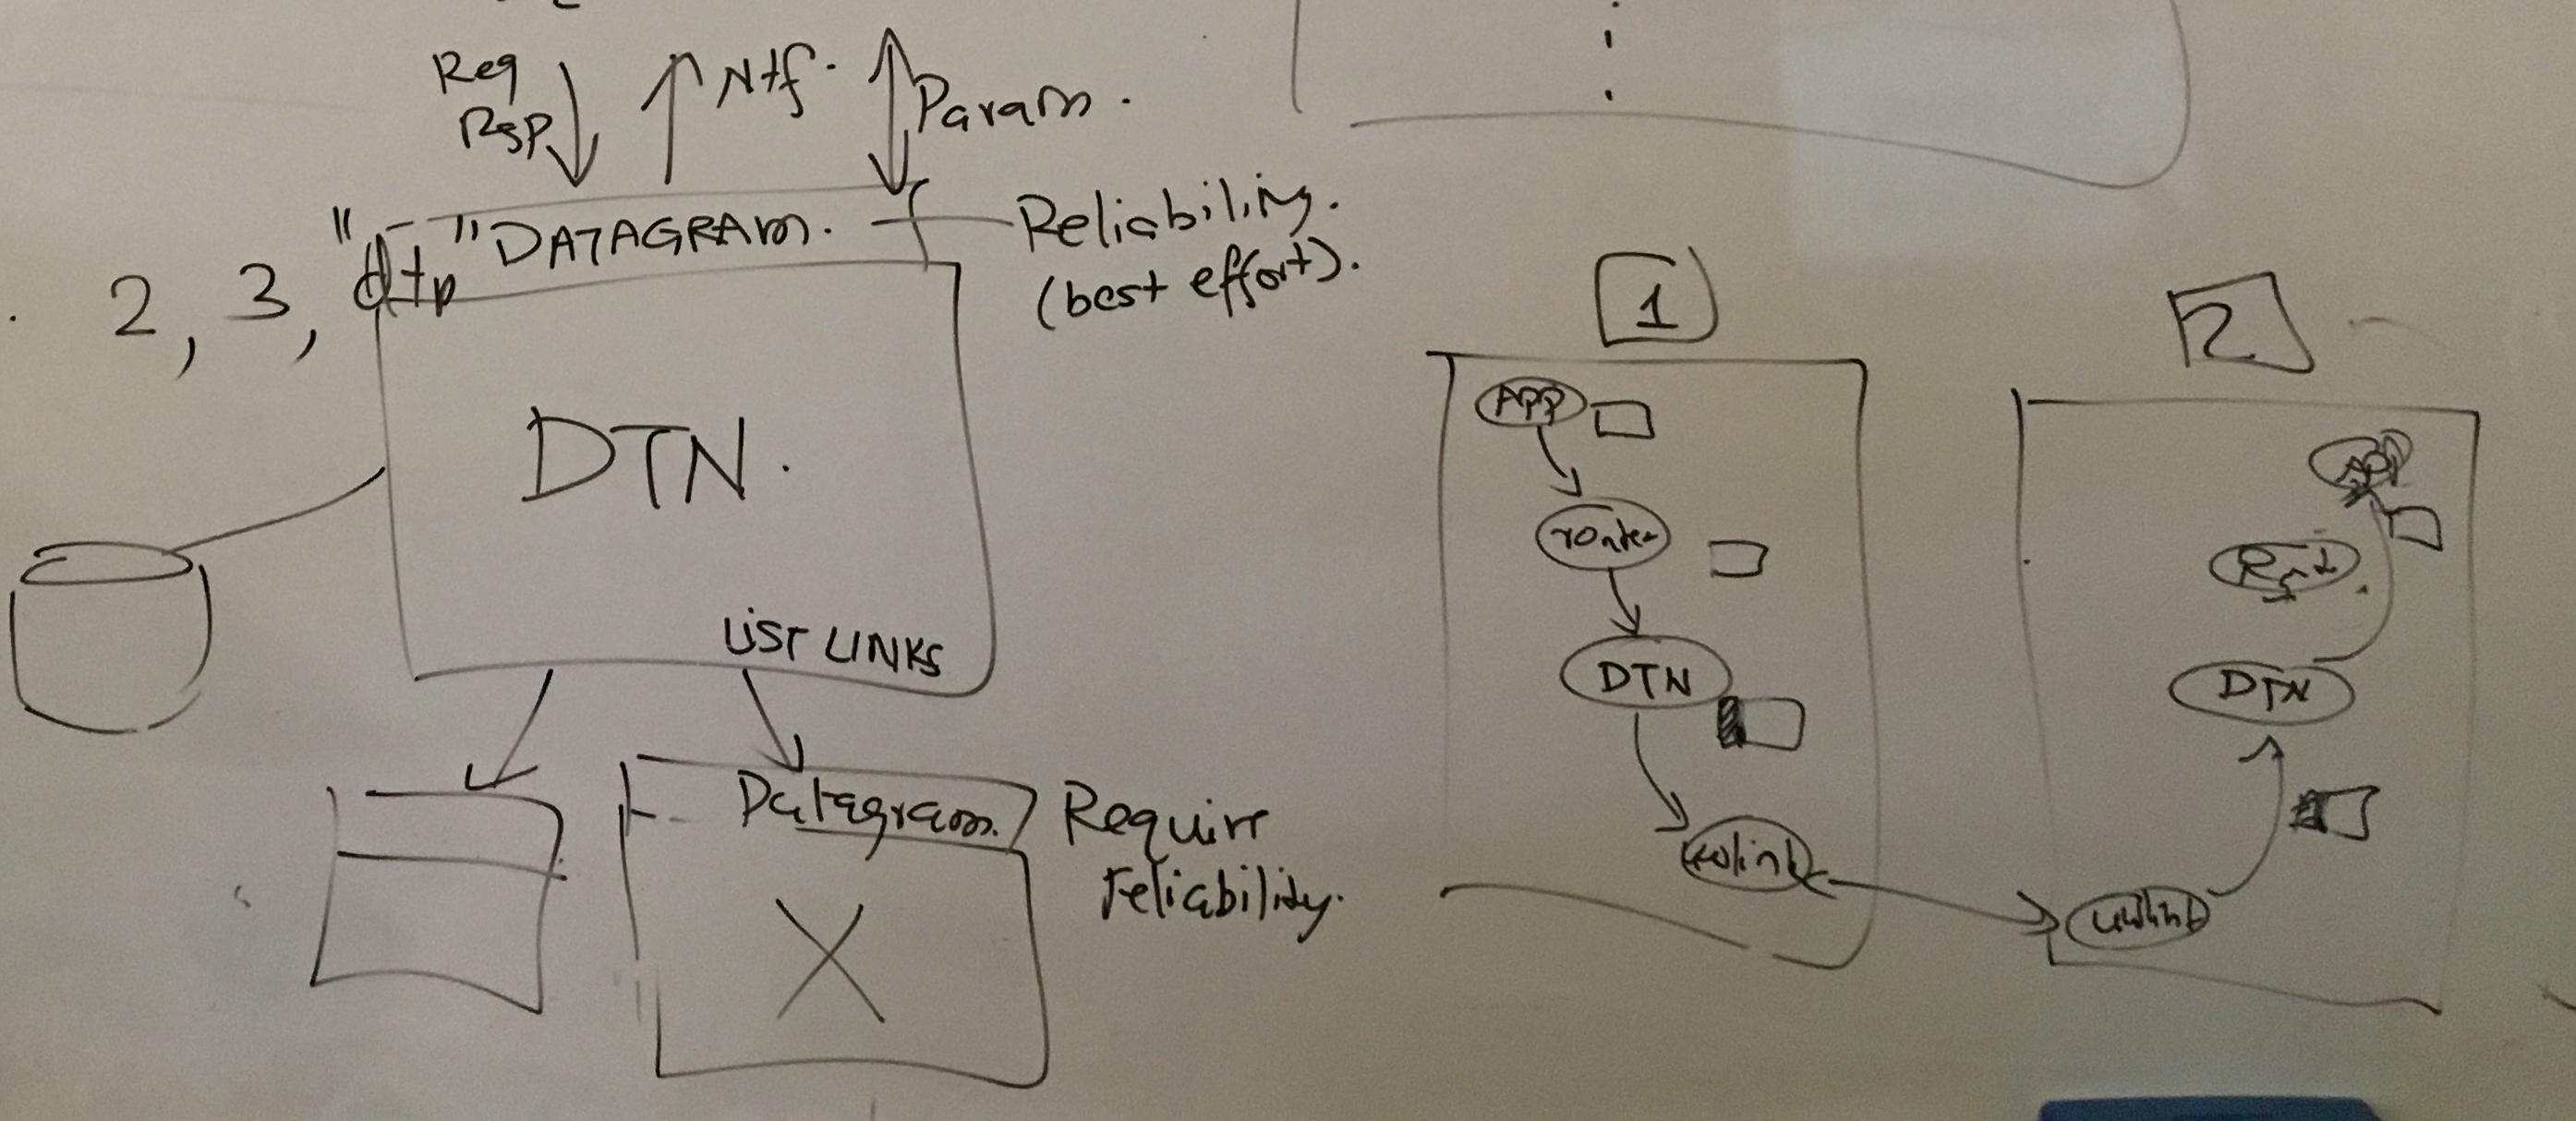 Req
Rsp
Ntf.
Param.
2, 3, "dtp"
DATAGRAM.
Reliability.
(best effort).
DTN.
LIST LINKS
Datagram.
Require
reliability.
1
APP
router
DTN
2
APP
DTN
uwlink